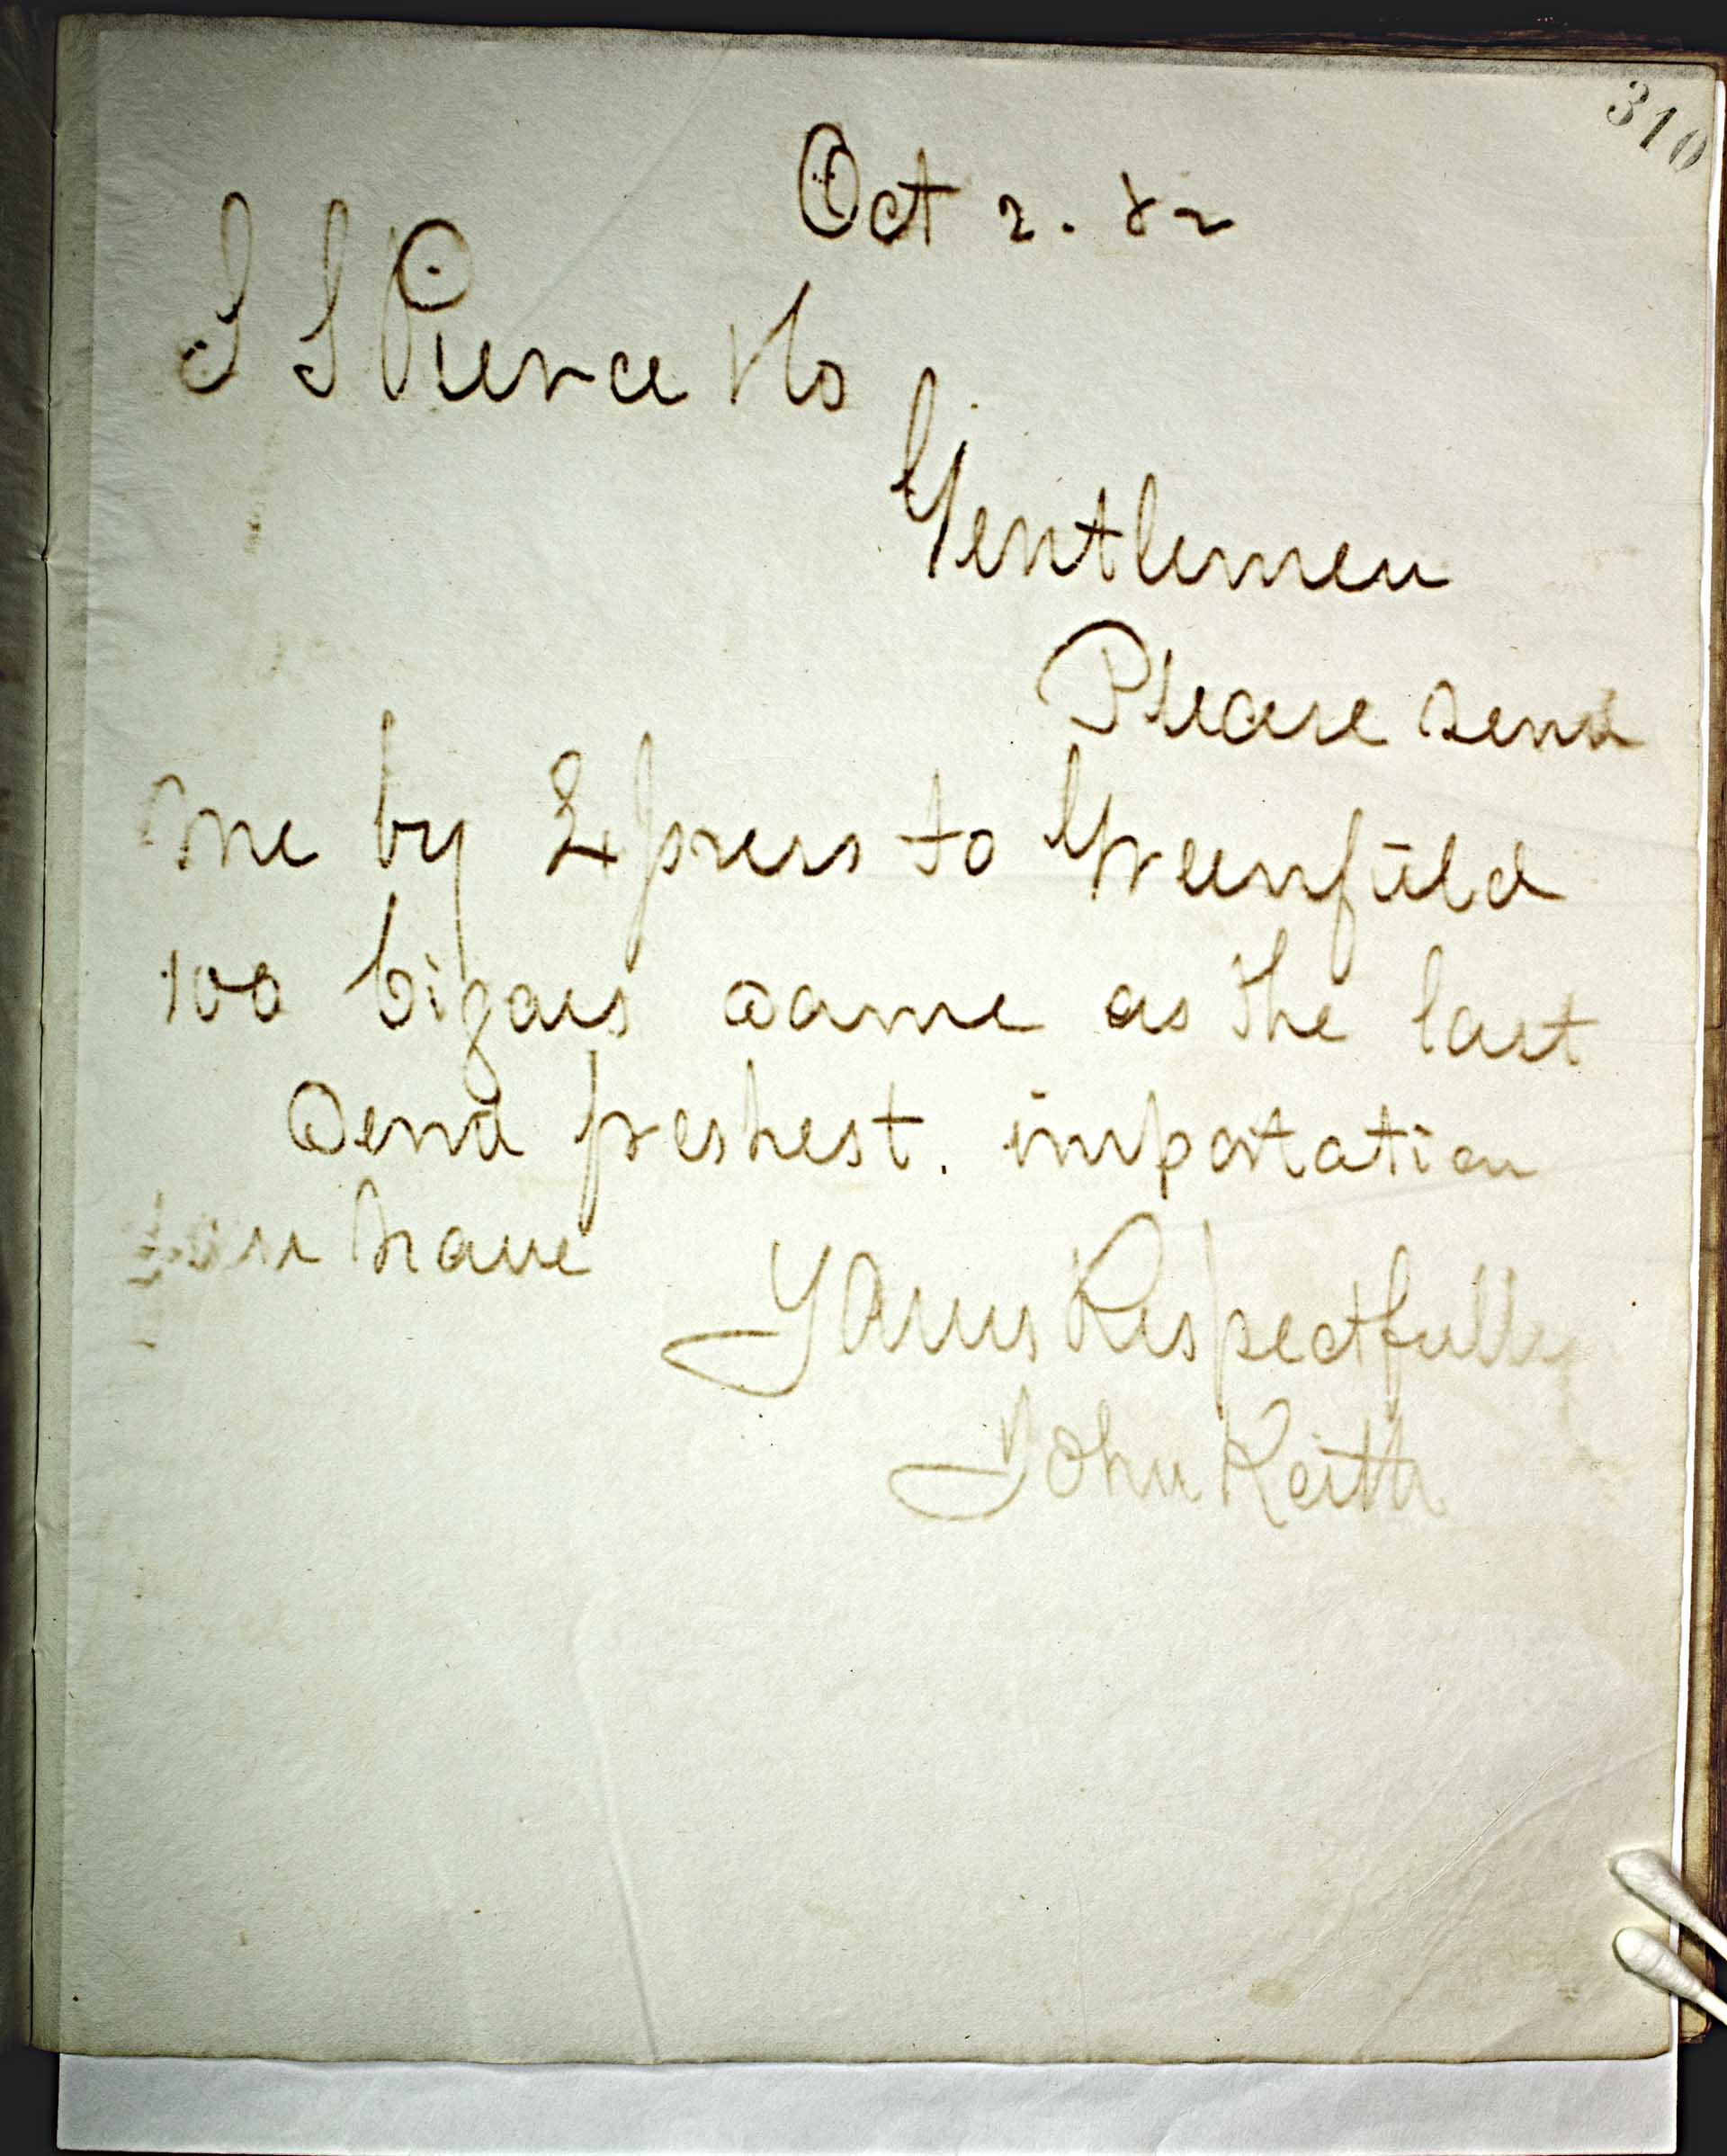 310
Oct 2. 82
S S Pierce & Co
Gentlemen
Please send
me by Express to Greenfield
100 Cigars same as the last
Send freshest. importation
have
Yours Respectfully
John Keith